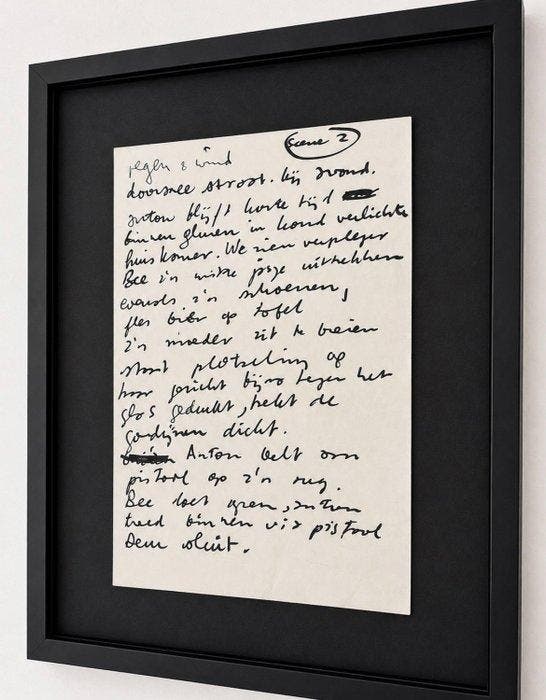 Scene 2
regen & wind
doorsnee straat. bij avond.
Anton blijft korte tijd
binnen gluren in hard verlichte
huiskamer. We zien verpleger
Bee z'n witte jasje uittrekken
evenals z'n schoenen,
fles bier op tafel
z'n moeder zit te breien
staat plotseling op
haar gezicht bijna tegen het
glas gedrukt, trekt de
gordijnen dicht.
Anton belt aan
pistool op z'n rug.
Bee doet open, Anton
treed binnen via pistool
Deur sluit.